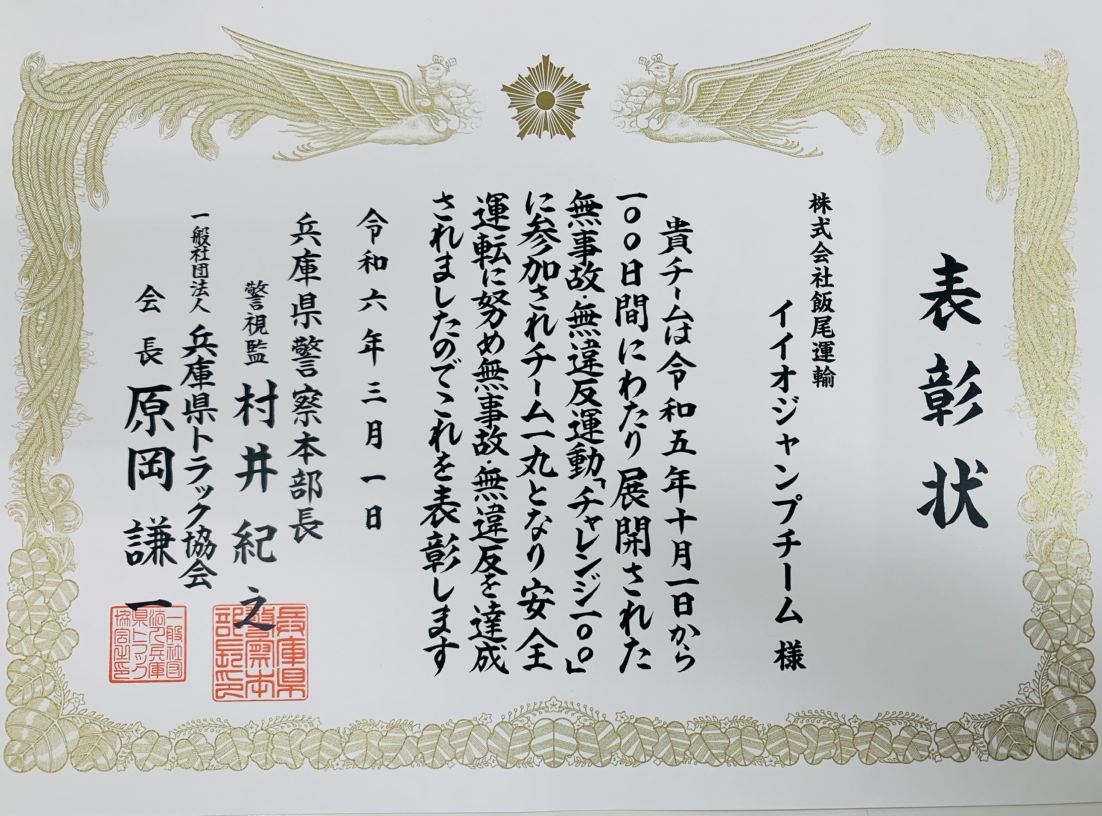 表彰状
株式会社飯尾運輸
イイオジャンプチーム 様
貴チームは令和五年十月一日から
一〇〇日間にわたり展開された
無事故・無違反運動「チャレンジ一〇〇」
に参加されチーム一丸となり安全
運転に努め無事故・無違反を達成
されましたのでこれを表彰します
令和六年三月一日
兵庫県警察本部長
警視監 村井紀之
兵庫県警察本部長印
一般社団法人 兵庫県トラック協会
会長 原岡謙一
一般社団法人兵庫県トラック協会之印